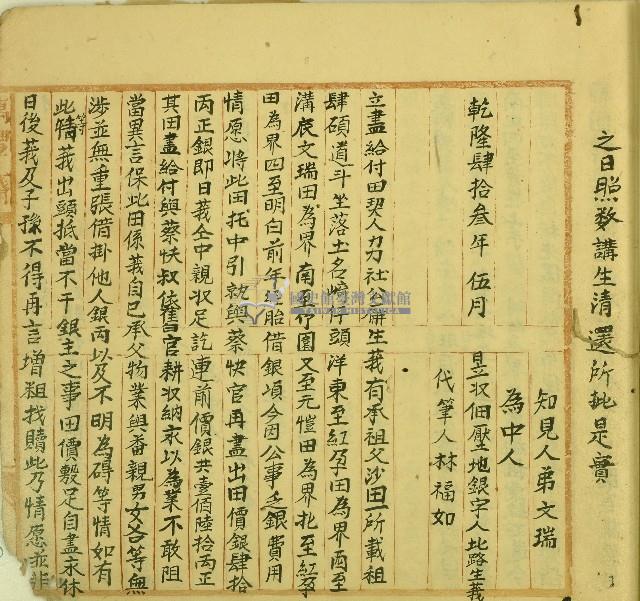 之日照數講生清還所批是實
知見人弟文瑞
為中人
昱收佃壓地銀字人北路生莪
代筆人林福如
乾隆肆拾叁年伍月
立盡給付田契人力力社公廨生莪有承祖父沙田一所載租
肆碩道斗坐落土名崎仔頭洋東至紅孕田為界西至
溝底文瑞田為界南至仔園又至元愷田為界北至紅孕
田為界四至明白前年胎借銀項今因公事乏銀費用
情愿將此田托中引就與蔡快官再盡出田價銀肆拾
丙正銀即日莪仝中親收足訖連前價銀共壹佰陸拾丙正
其田盡給付與蔡快叔依舊官耕收納永以為業不敢阻
當異言保此田係莪自己承父物業與番親男女各等無
涉並無重張借掛他人銀丙以及不明為碍等情如有
此情等莪出頭抵當不干銀主之事田價敷足自盡永休
日後莪及子孫不得再言增租找贖此乃情愿並非
國史館臺灣文獻館